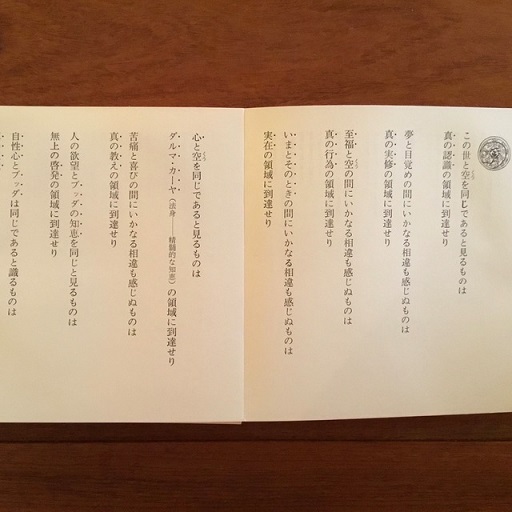 この世と空を同じであると見るものは
真の認識の領域に到達せり
夢と目覚めの間にいかなる相違も感じぬものは
真の実修の領域に到達せり
至福と空の間にいかなる相違も感じぬものは
真の行為の領域に到達せり
いまとそのときの間にいかなる相違も感じぬものは
実在の領域に到達せり
心と空を同じであると見るものは
ダルマ・カーヤ（法身――精髄的な知恵）の領域に到達せり
苦痛と喜びの間にいかなる相違も感じぬものは
真の教えの領域に到達せり
人の欲望とブッダの知恵を同じと見るものは
無上の啓発の領域に到達せり
自性心とブッダは同じであると識るものは